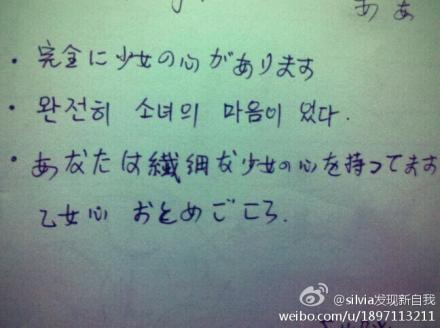 ああ
・完全に少女の心があります
・완전히 소녀의 마음이 있다.
・あなたは繊細な少女の心を持ってます
乙女心 おとめごころ.
@silvia发现新自我
weibo.com/u/1897113211